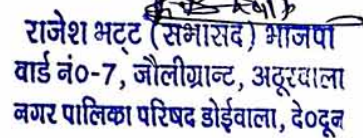 राजेश भट्ट (सभासद) भाजपा
वार्ड नं०-7, जौलीग्रान्ट, अठूरवाला
नगर पालिका परिषद डोईवाला, दे०दून